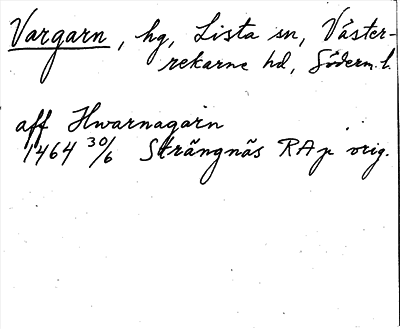 Vargarn, hg, Lista sn, Väster-
rekarne hd, Söderm. l.
aff Hwarnagarn
1464 30/6 Strängnäs RAp orig.